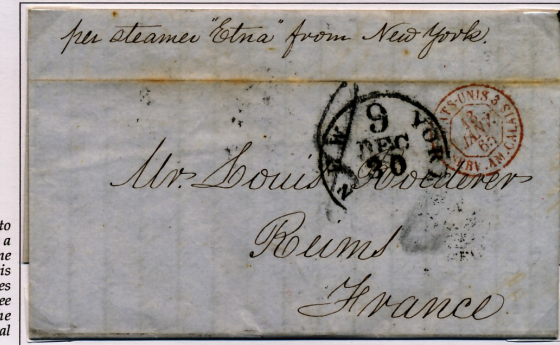 per steamer "Etna" from New York.
NEW YORK
9
DEC
30
ETATS-UNIS 3
SERV. AM. CALAIS
JANV.
Mr. Louis Roederer
Reims
France
to
a
ne
is
es
ee
ne
al